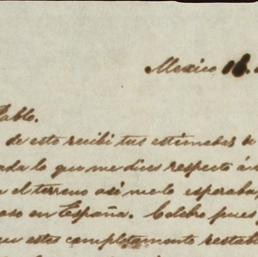 Mexico 16.
Pablo.
de esto recibi tus estimadas
lo que me dices respecto á
el terreno asi me lo esperaba,
en España. Celebro pues
estes completamente